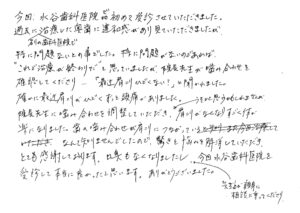 今回、水谷歯科医院で初めて受診させていただきました。
過去に治療した奥歯に違和感があり見ていただきましたが
別の歯科医院で
特に問題ないとの事でした。特に問題がないのであれば、
"これで治療が終わりだ"と思っていましたが 院長先生が噛み合わせを
確認してくださり 「最近肩こりひどくない?」と聞かれました。
確かに最近肩こりがひどくずっと頭痛もありました。
院長先生に噛み合わせを調整していただき、肩こりがなくなりすごく体が
楽になりました。歯の噛み合わせが肩こりにつながっている
なんて知りませんでしたので、驚きと悩みが解消していただき、
とても感謝しております。口臭もなくなりましたし 今回水谷歯科医院を
受診して本当に良かったと思います。ありがとうございました。
先生が親身に
相談に乗ってくださり